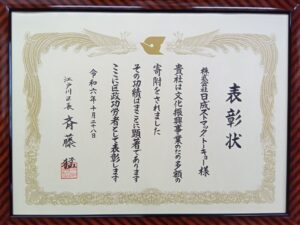 表彰状
株式会社日成ストマック・トーキョー様
貴社は文化振興事業のため多額の
寄附をされました
その功績はまことに顕著であります
ここに区政功労者として表彰します
令和六年十月二十八日
江戸川区長 斉藤 猛